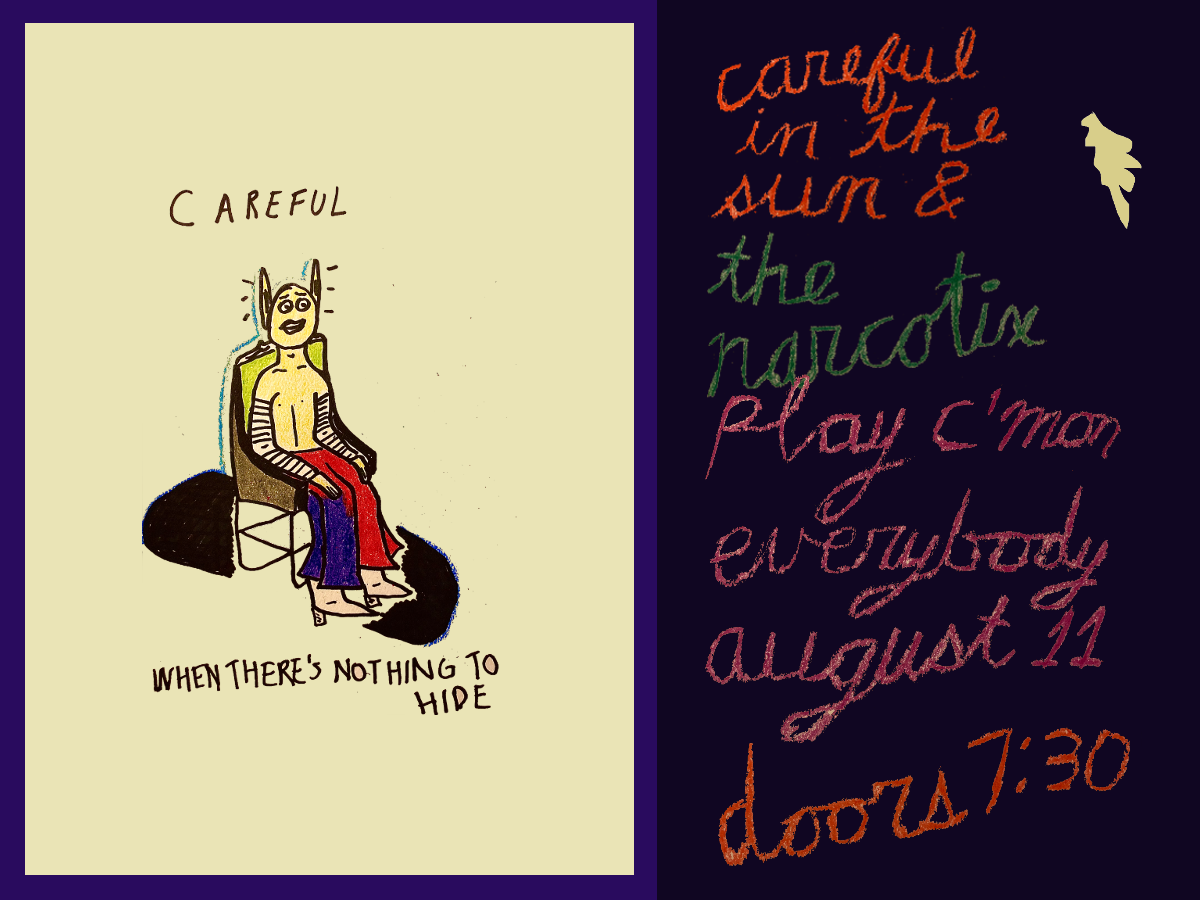 CAREFUL
WHEN THERE'S NOTHING TO
HIDE
careful
in the
sun &
the
narcotix
play c'mon
everybody
august 11
doors 7:30